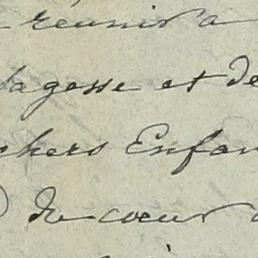 réunir a
sagesse et de
chers Enfan
du coeur